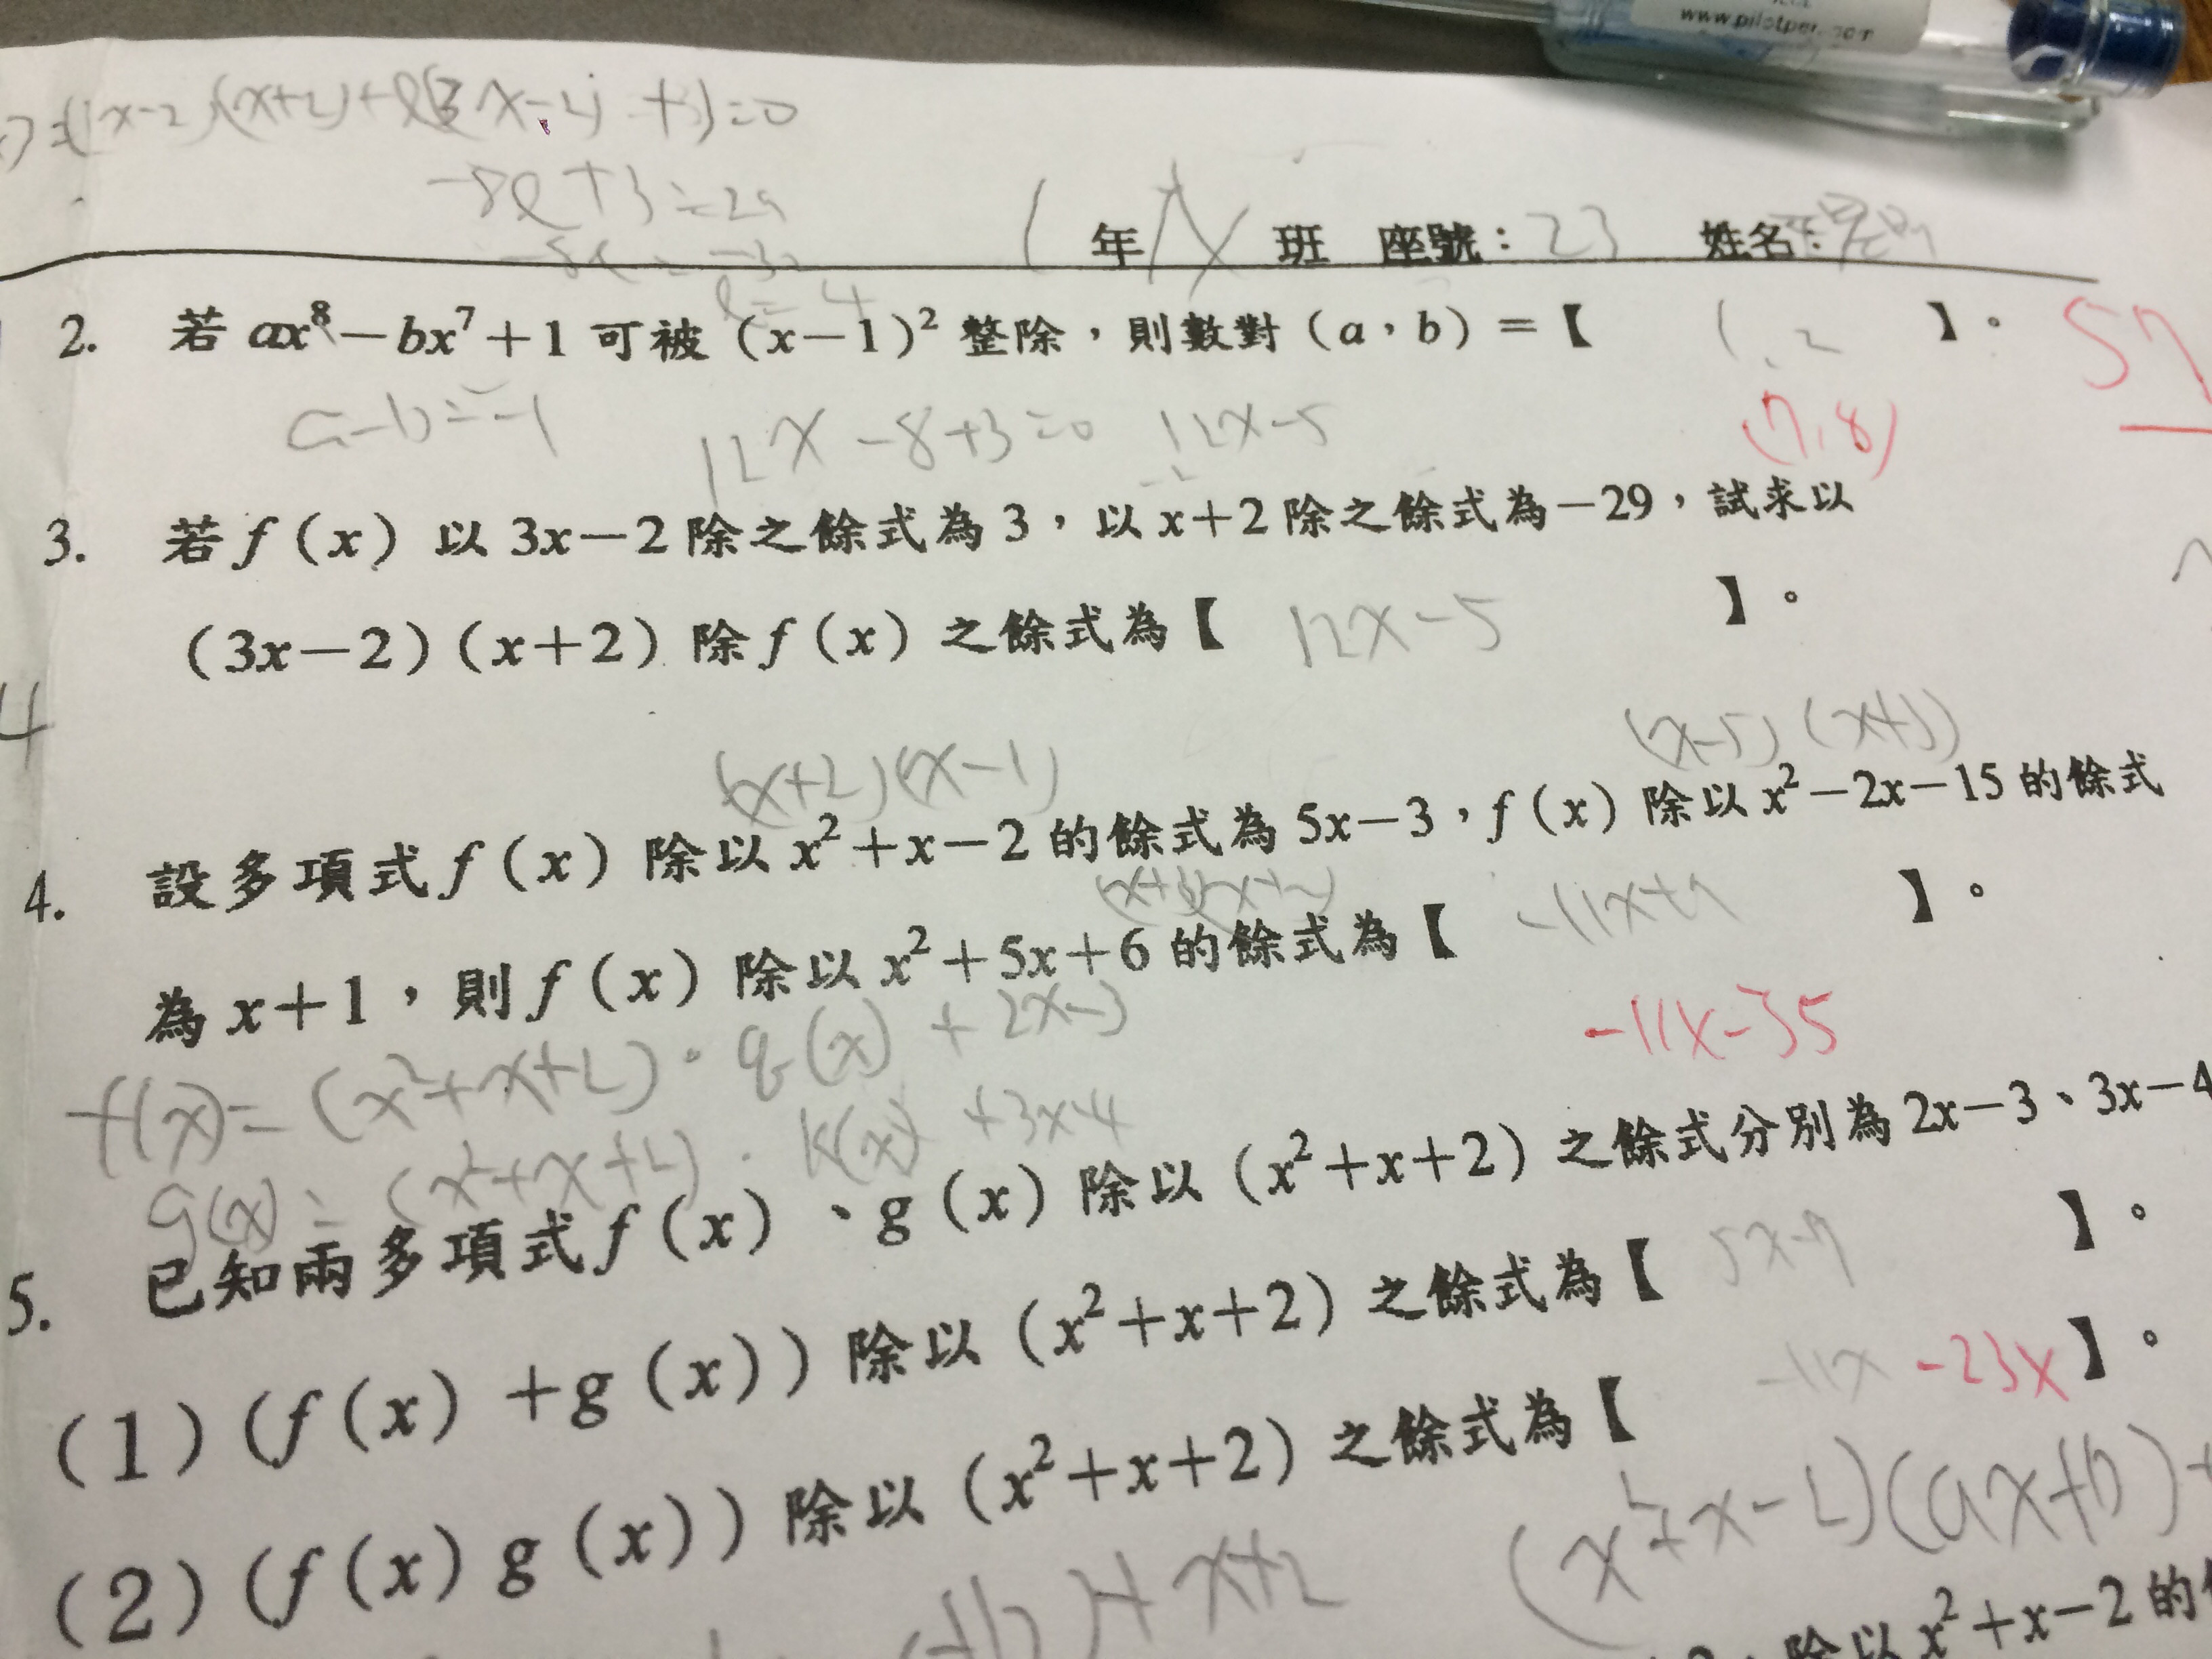 www.pilotpen.com
(x-2)(x+2)+l(3x-2)+3)=0
-8l+3=29
l=4
1年 班 座號：23 姓名：
2. 若 ax⁸－bx⁷＋1 可被（x－1）² 整除，則數對（a，b）＝【 1,2 】。
57
a-b=-1 12x-8+3=0 12x-5 (7,8)
3. 若 f（x）以 3x－2 除之餘式為 3，以 x＋2 除之餘式為－29，試求以
（3x－2）（x＋2）除 f（x）之餘式為【 12x-5 】。
4
(x+2)(x-1) (x-5)(x+3)
4. 設多項式 f（x）除以 x²＋x－2 的餘式為 5x－3，f（x）除以 x²－2x－15 的餘式
(x+3)(x+2)
為 x＋1，則 f（x）除以 x²＋5x＋6 的餘式為【 】。
-11x-35
f(x)=(x²+x+2)·q(x)+2x-3
g(x)=(x²+x+2)·k(x)+3x-4
5. 已知兩多項式 f（x）、g（x）除以（x²＋x＋2）之餘式分別為 2x－3、3x－4
（1）（f（x）＋g（x））除以（x²＋x＋2）之餘式為【 5x-7 】。
（2）（f（x）g（x））除以（x²＋x＋2）之餘式為【 -11x -23x 】。
(x²+x-2)(ax+b)+
+x+2
除以 x²＋x－2 的